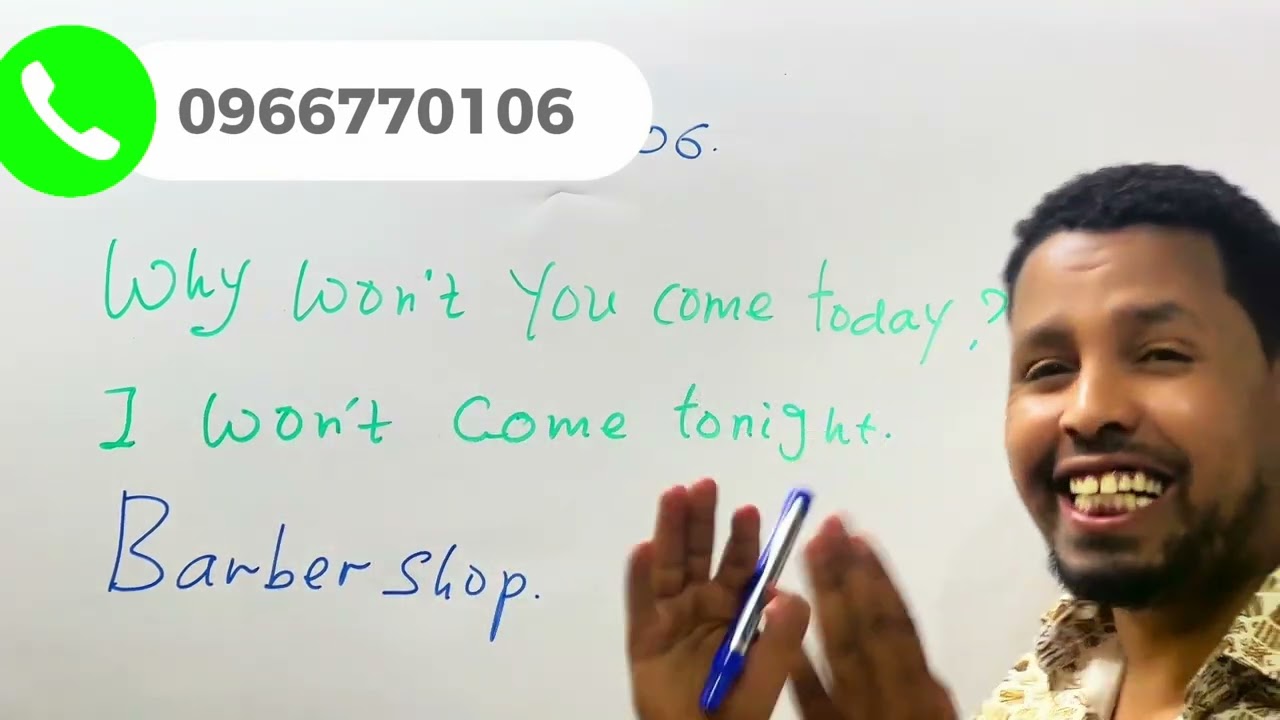 0966770106
06.
Why won't You come today?
I won't come tonight.
Barber shop.